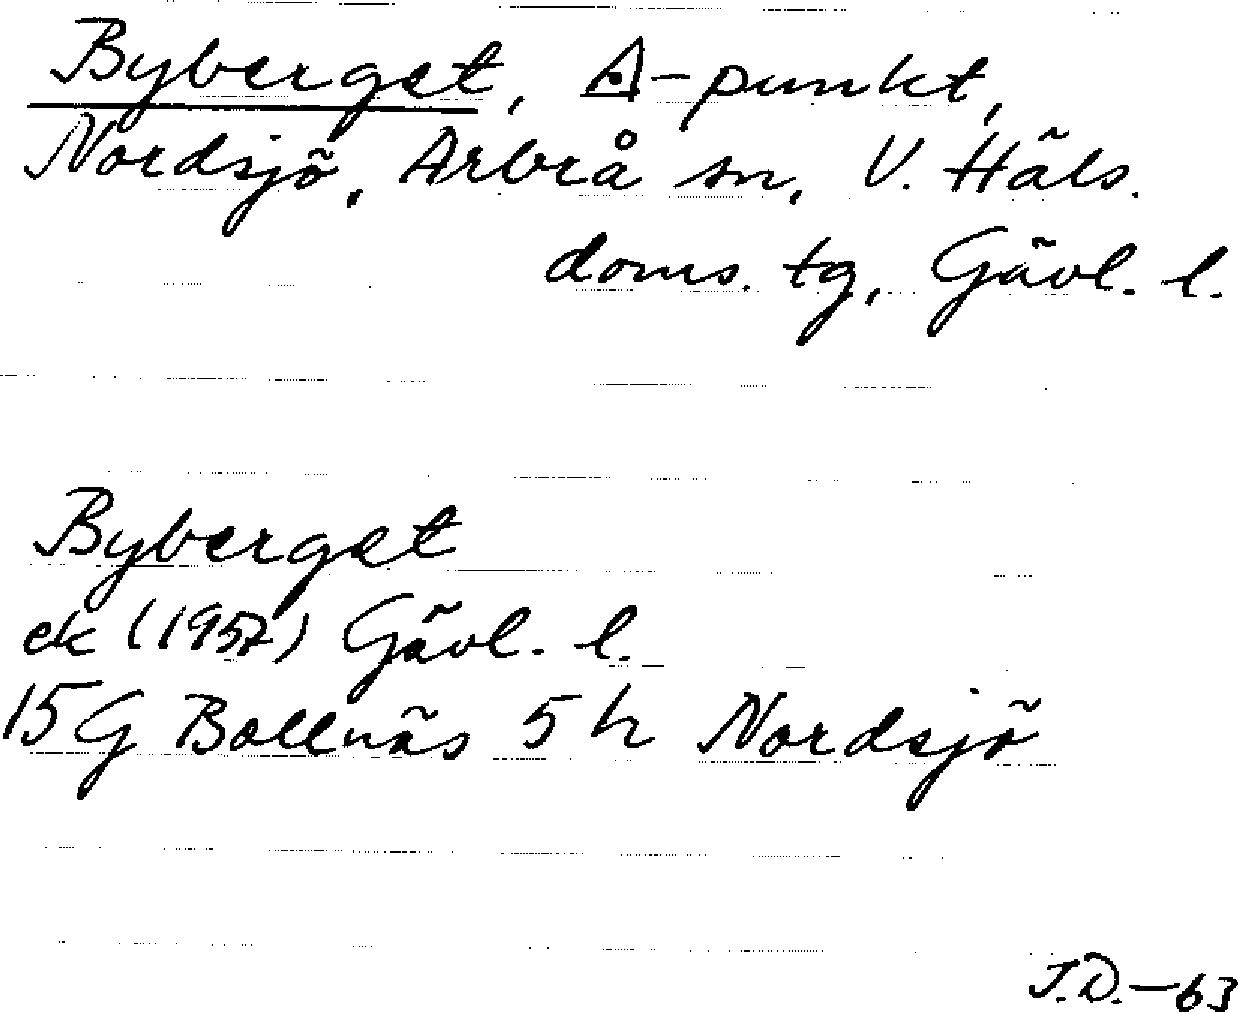 Byberget, ◬-punkt,
Nordsjö, Arbrå sn, V. Häls.
doms. tg, Gävl. l.
Byberget
ek (1957) Gävl. l.
15G Bollnäs 5h Nordsjö
J.D.-63